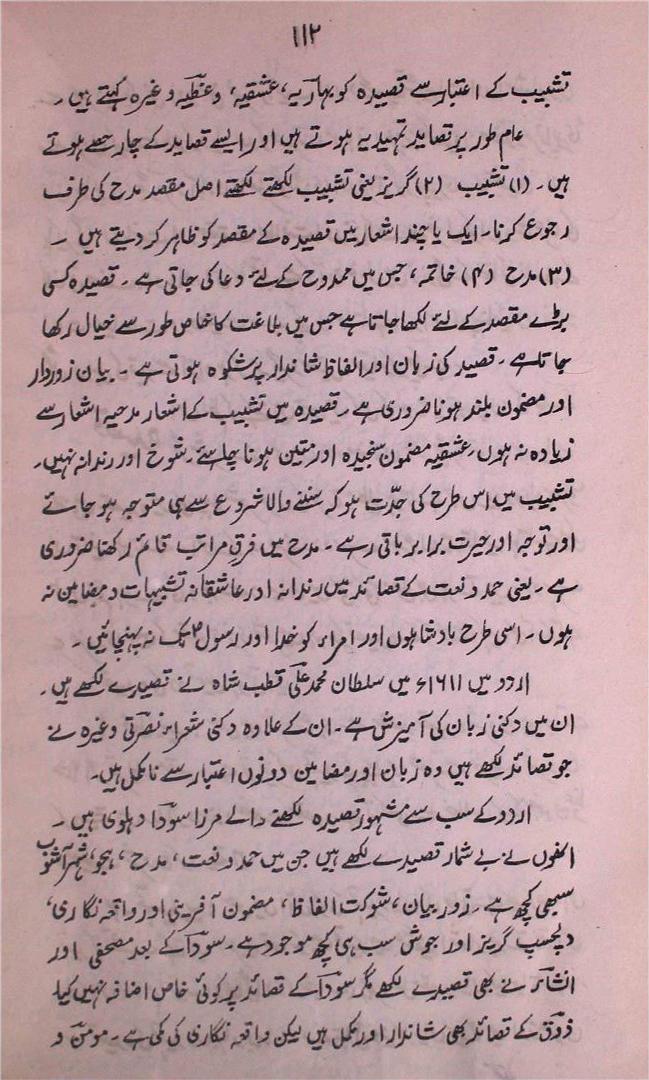 ۱۱۲
تشبیب کے اعتبار سے قصیدہ کو بہاریہ، عشقیہ، وعظیہ وغیرہ کہتے ہیں۔
عام طور پر قصاید تمہیدیہ ہوتے ہیں اور ایسے قصاید کے چار حصے ہوتے
ہیں۔ (۱) تشبیب (۲) گریز یعنی تشبیب لکھتے لکھتے اصل مقصد مدح کی طرف
رجوع کرنا۔ ایک یا چند اشعار میں قصیدہ کے مقصد کو ظاہر کر دیتے ہیں۔
(۳) مدح (۴) خاتمہ، جس میں ممدوح کے لئے دعا کی جاتی ہے۔ قصیدہ کسی
بڑے مقصد کے لئے لکھا جاتا ہے جس میں بلاغت کا خاص طور سے خیال رکھا
جاتا ہے۔ قصید کی زبان اور الفاظ شاندار پرشکوہ ہوتی ہے۔ بیان زوردار
اور مضمون بلند ہونا ضروری ہے۔ قصیدہ میں تشبیب کے اشعار مدحیہ اشعار سے
زیادہ نہ ہوں، عشقیہ مضمون سنجیدہ اور متین ہونا چاہئے۔ شوخ اور رندانہ نہیں۔
تشبیب میں اس طرح کی جدّت ہو کہ سننے والا شروع سے ہی متوجہ ہو جائے
اور توجہ اور حیرت برابر باقی رہے۔ مدح میں فرقِ مراتب قائم رکھنا ضروری
ہے۔ یعنی حمد و نعت کے قصائد میں رندانہ اور عاشقانہ تشبیہات و مضامین نہ
ہوں۔ اسی طرح بادشاہوں اور امراء کو خدا اور رسولؐ تک نہ پہنچائیں۔
اردو میں ۱۶۱۱ء میں سلطان محمد علی قطب شاہ نے قصیدے لکھے ہیں۔
ان میں دکنی زبان کی آمیزش ہے۔ ان کے علاوہ دکنی شعراء نصرتی وغیرہ نے
جو قصائد لکھے ہیں وہ زبان اور مضامین دونوں اعتبار سے نامکمل ہیں۔
اردو کے سب سے مشہور قصیدہ لکھنے والے مرزا سودا دہلوی ہیں۔
انھوں نے بے شمار قصیدے لکھے ہیں جن میں حمد و نعت، مدح، ہجو، شہر آشوب
سبھی کچھ ہے۔ زور بیان، شوکت الفاظ، مضمون آفرینی اور واقعہ نگاری،
دلچسپ گریز اور جوش سب ہی کچھ موجود ہے۔ سودا کے بعد مصحفی اور
انشاء نے بھی قصیدے لکھے مگر سودا کے قصائد پر کوئی خاص اضافہ نہیں کیا۔
ذوق کے قصائد بھی شاندار اور مکمل ہیں لیکن واقعہ نگاری کی کمی ہے۔ مومن و